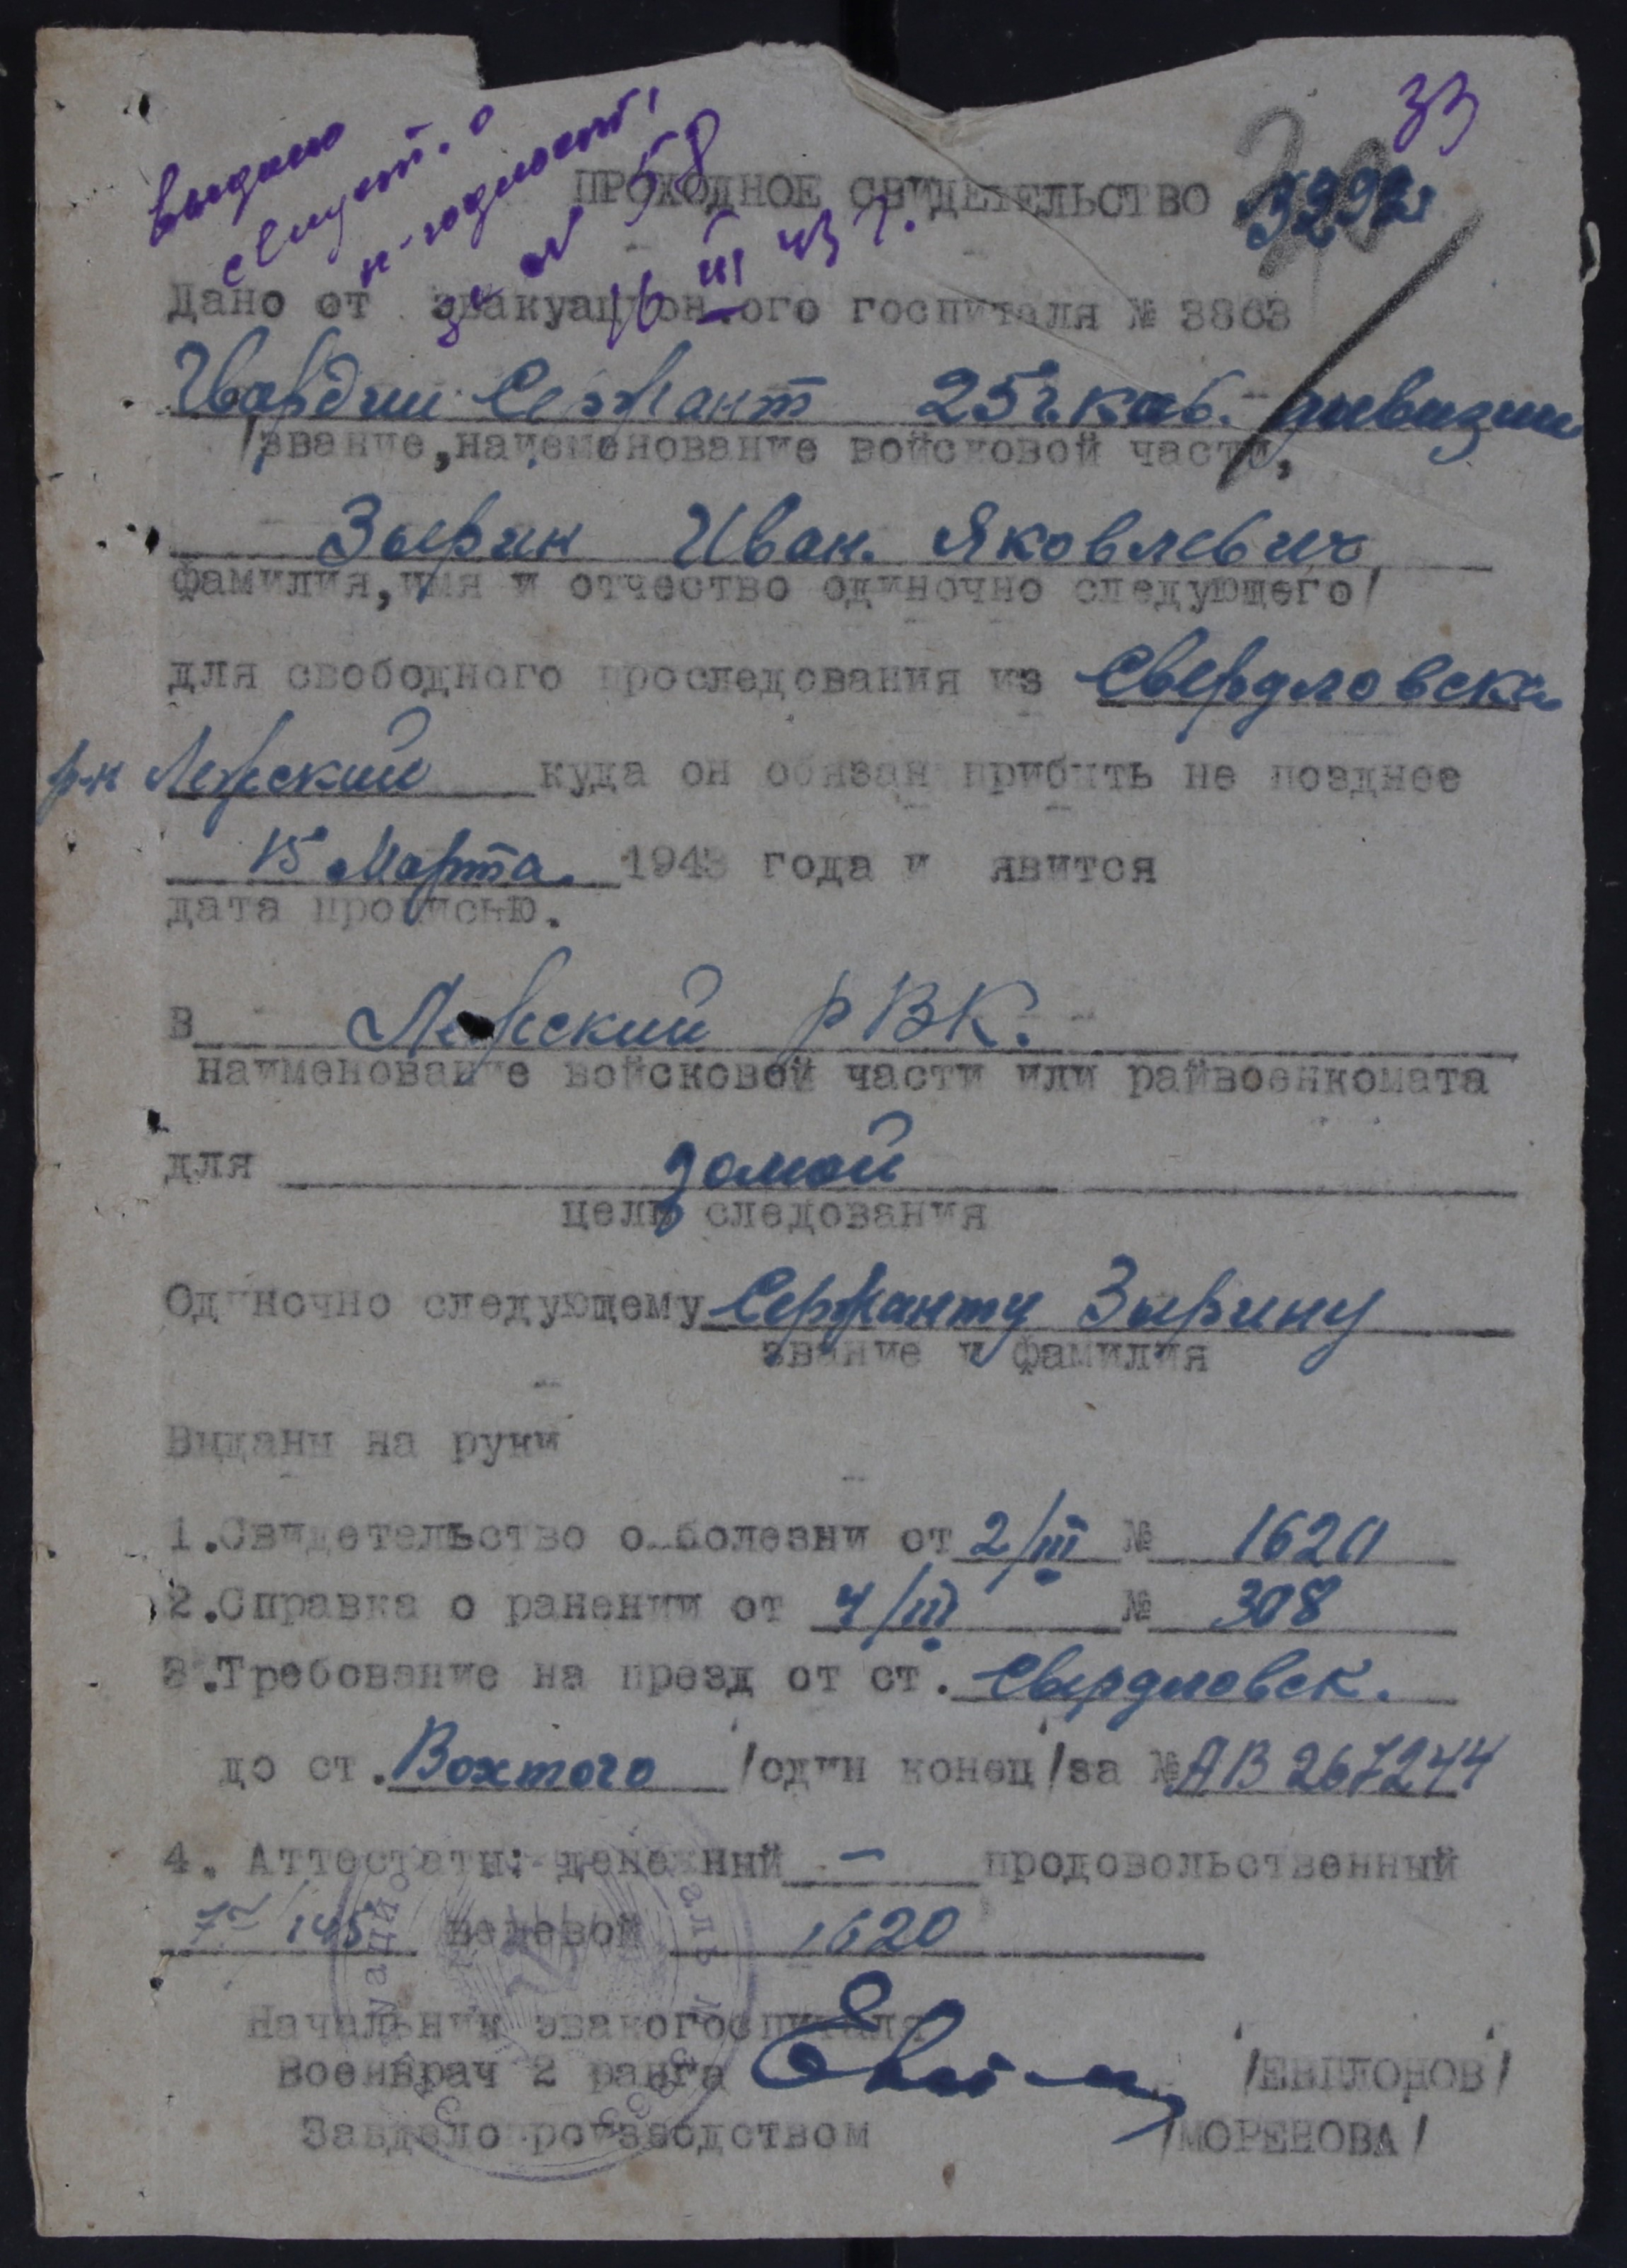 33
выдано
свидет. о
н-годност.
за № 58
16 III 43 г.
ПРОХОДНОЕ СВИДЕТЕЛЬСТВО
Дано от эвакуационного госпиталя № 3863
Гвардии Сержант 25 г. кав. дивизии
/звание, наименование войсковой части,
Зырин Иван Яковлевич
фамилия, имя и отчество одиночно следующего/
для свободного проследования из Свердловска
р-н куда он обязан прибыть не позднее
15 Марта 1943 года и явится
дата прописью.
в РВК.
наименование войсковой части или райвоенкомата
для домой
цель следования
Одиночно следующему Сержанту Зырину
звание и фамилия
Выданы на руки
1. Свидетельство о болезни от 2/III № 1620
2. Справка о ранении от 4/III № 308
3. Требование на презд от ст. Свердловск.
до ст. Вохтога /один конец/ за № АВ 267244
4. Аттестаты: денежный – продовольственный
145 вещевой 1620
Начальник эвакогоспиталя
Военврач 2 ранга /ЕВЫЛОНОВ/
Завделопроизводством /МОРЕНОВА/